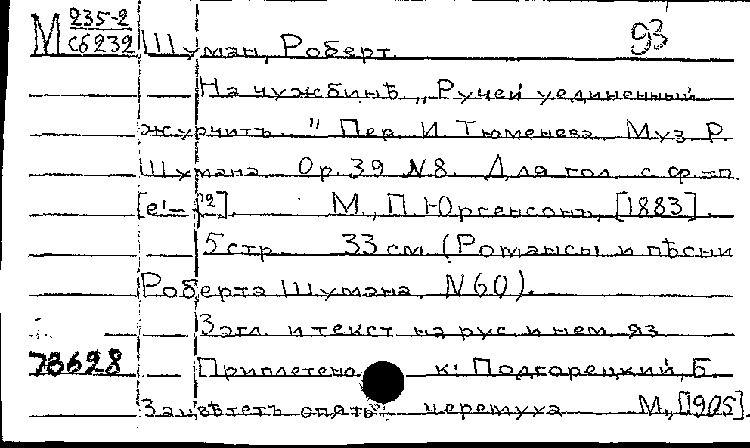 М 235-2
сб232
Шуман, Роберт. 93
На чужбинѣ. „Ручей уединенный
журчитъ." Пер. И. Тюменева. Муз. Р.
Шумана. Op. 39 N8. Для гол. с ф-п.
[e¹- ²]. М., П. Юргенсонъ, [1883].
5 стр. 33 см. (Романсы и пѣсни
Роберта Шумана. N60).
Загл. и текст на рус. и нем. яз.
78628 Приплетено к: Подгорецкий, Б.
Зацвѣтетъ опять черемуха М., [1905].